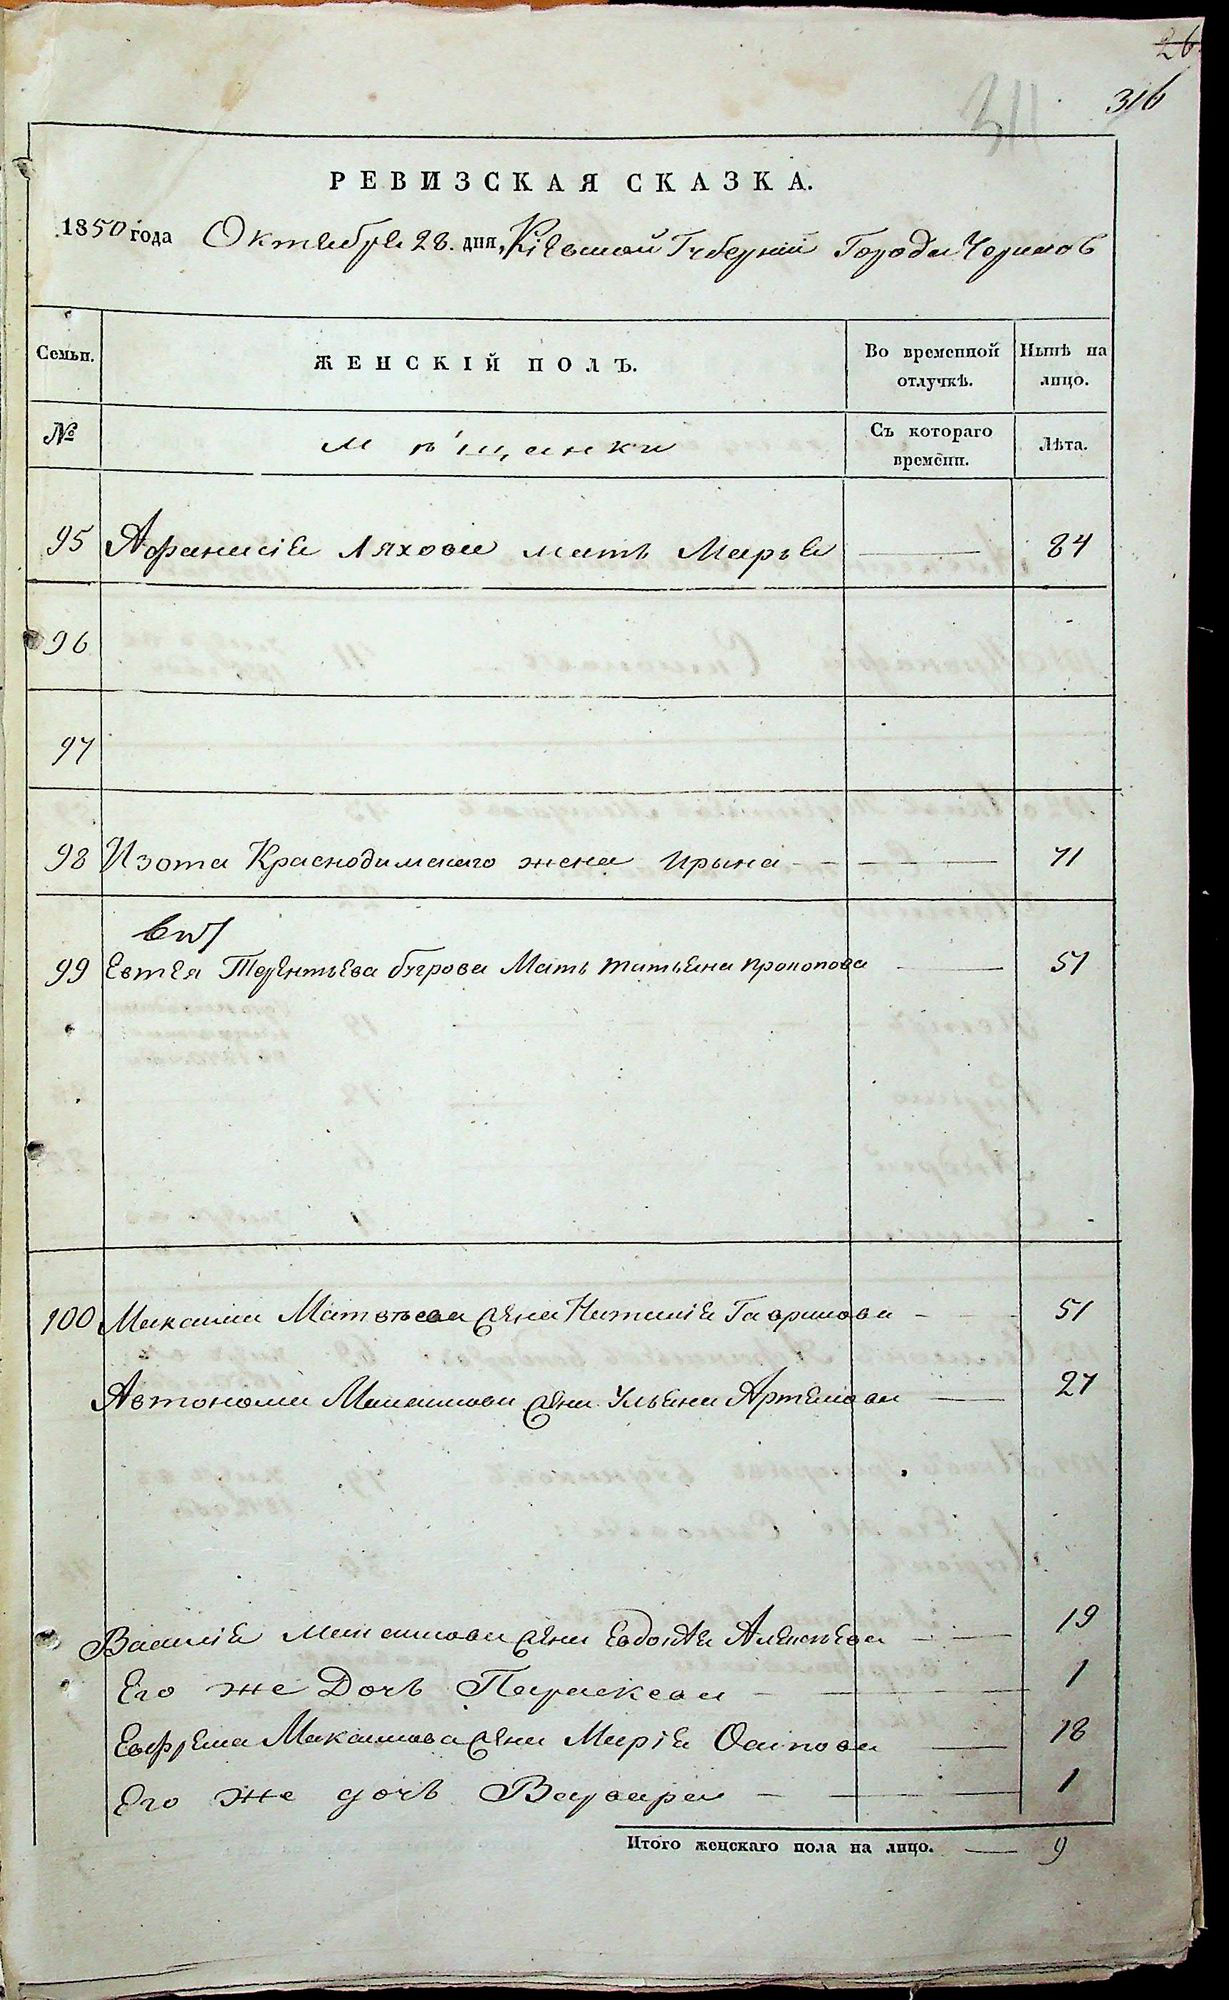 26
311
316
РЕВИЗСКАЯ СКАЗКА.
1850 года Октября 28. дня, Кіевской Губерніи Города
Семьи.
ЖЕНСКІЙ ПОЛЪ.
Во временной отлучкѣ.
Нынѣ на лицо.
№
Мѣщанки
Съ котораго времени.
Лѣта.
95 Афанасія Ляхова мать Марья 84
96
97
98 Изота жена Ирына 71
99 Евтея Терентьева Бугрова Мать татьяна прокопова 51
100 Максима Матвѣева жена Наталія Гаврилова 51
Автонома Максимова жена Ульяна Артемова 27
Василія Максимова жена Евдокія Алексѣева 19
Его же Дочь Параскева 1
Евфрема Максимова жена Марія Осипова 18
Его же дочь Варвара 1
Итого женскаго пола на лицо. 9